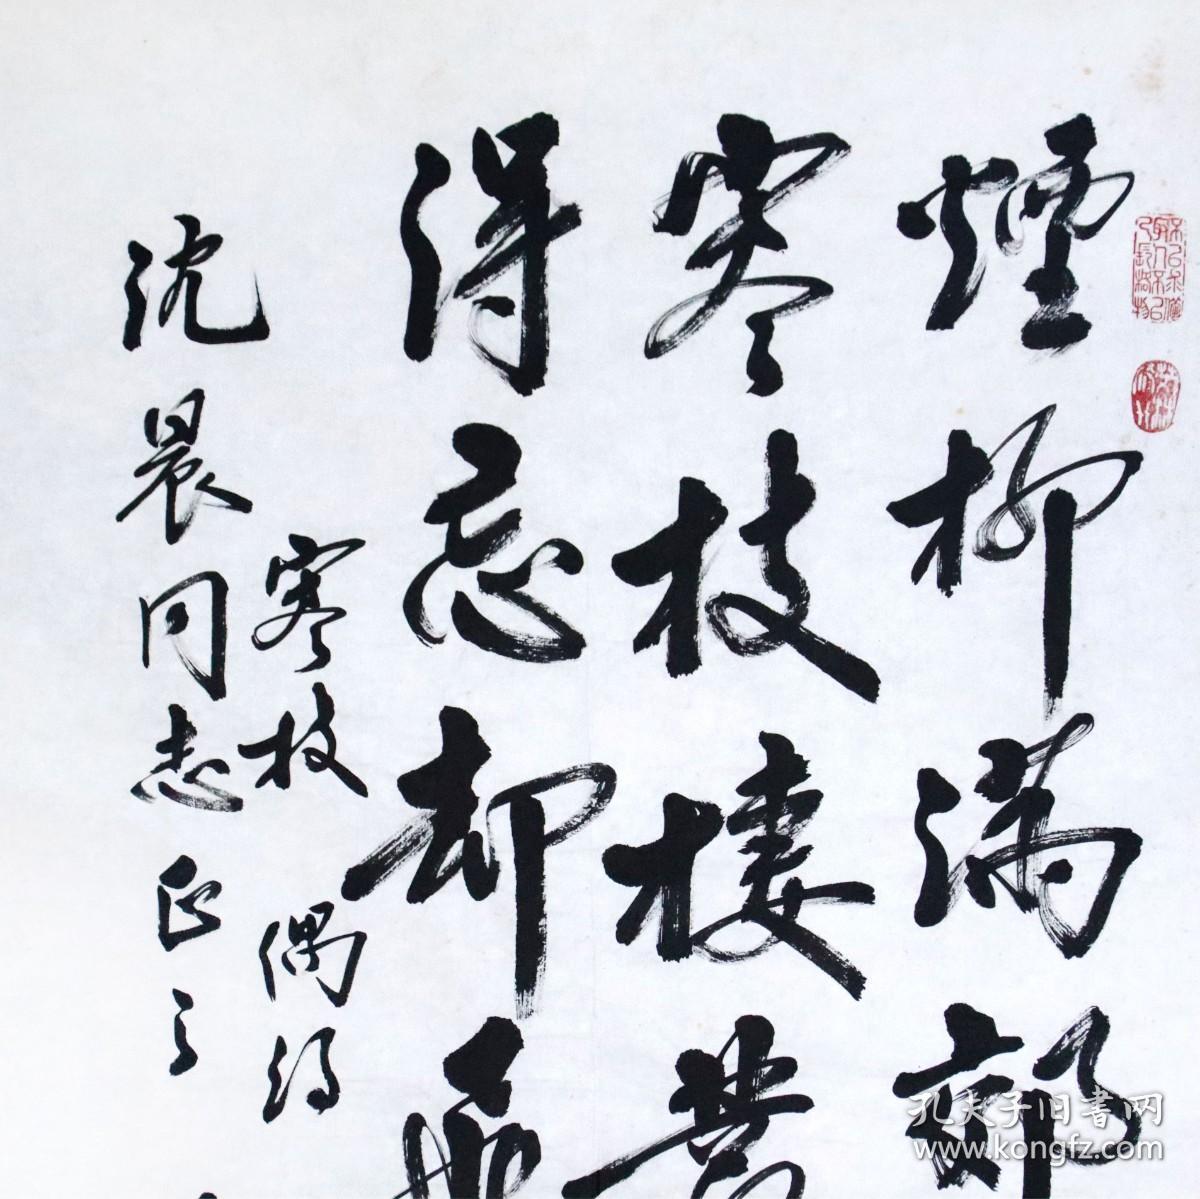 煙柳满郊
寒枝棲
得忘却
寒枝 偶得
沈晨同志正之
孔夫子旧书网
www.kongfz.com